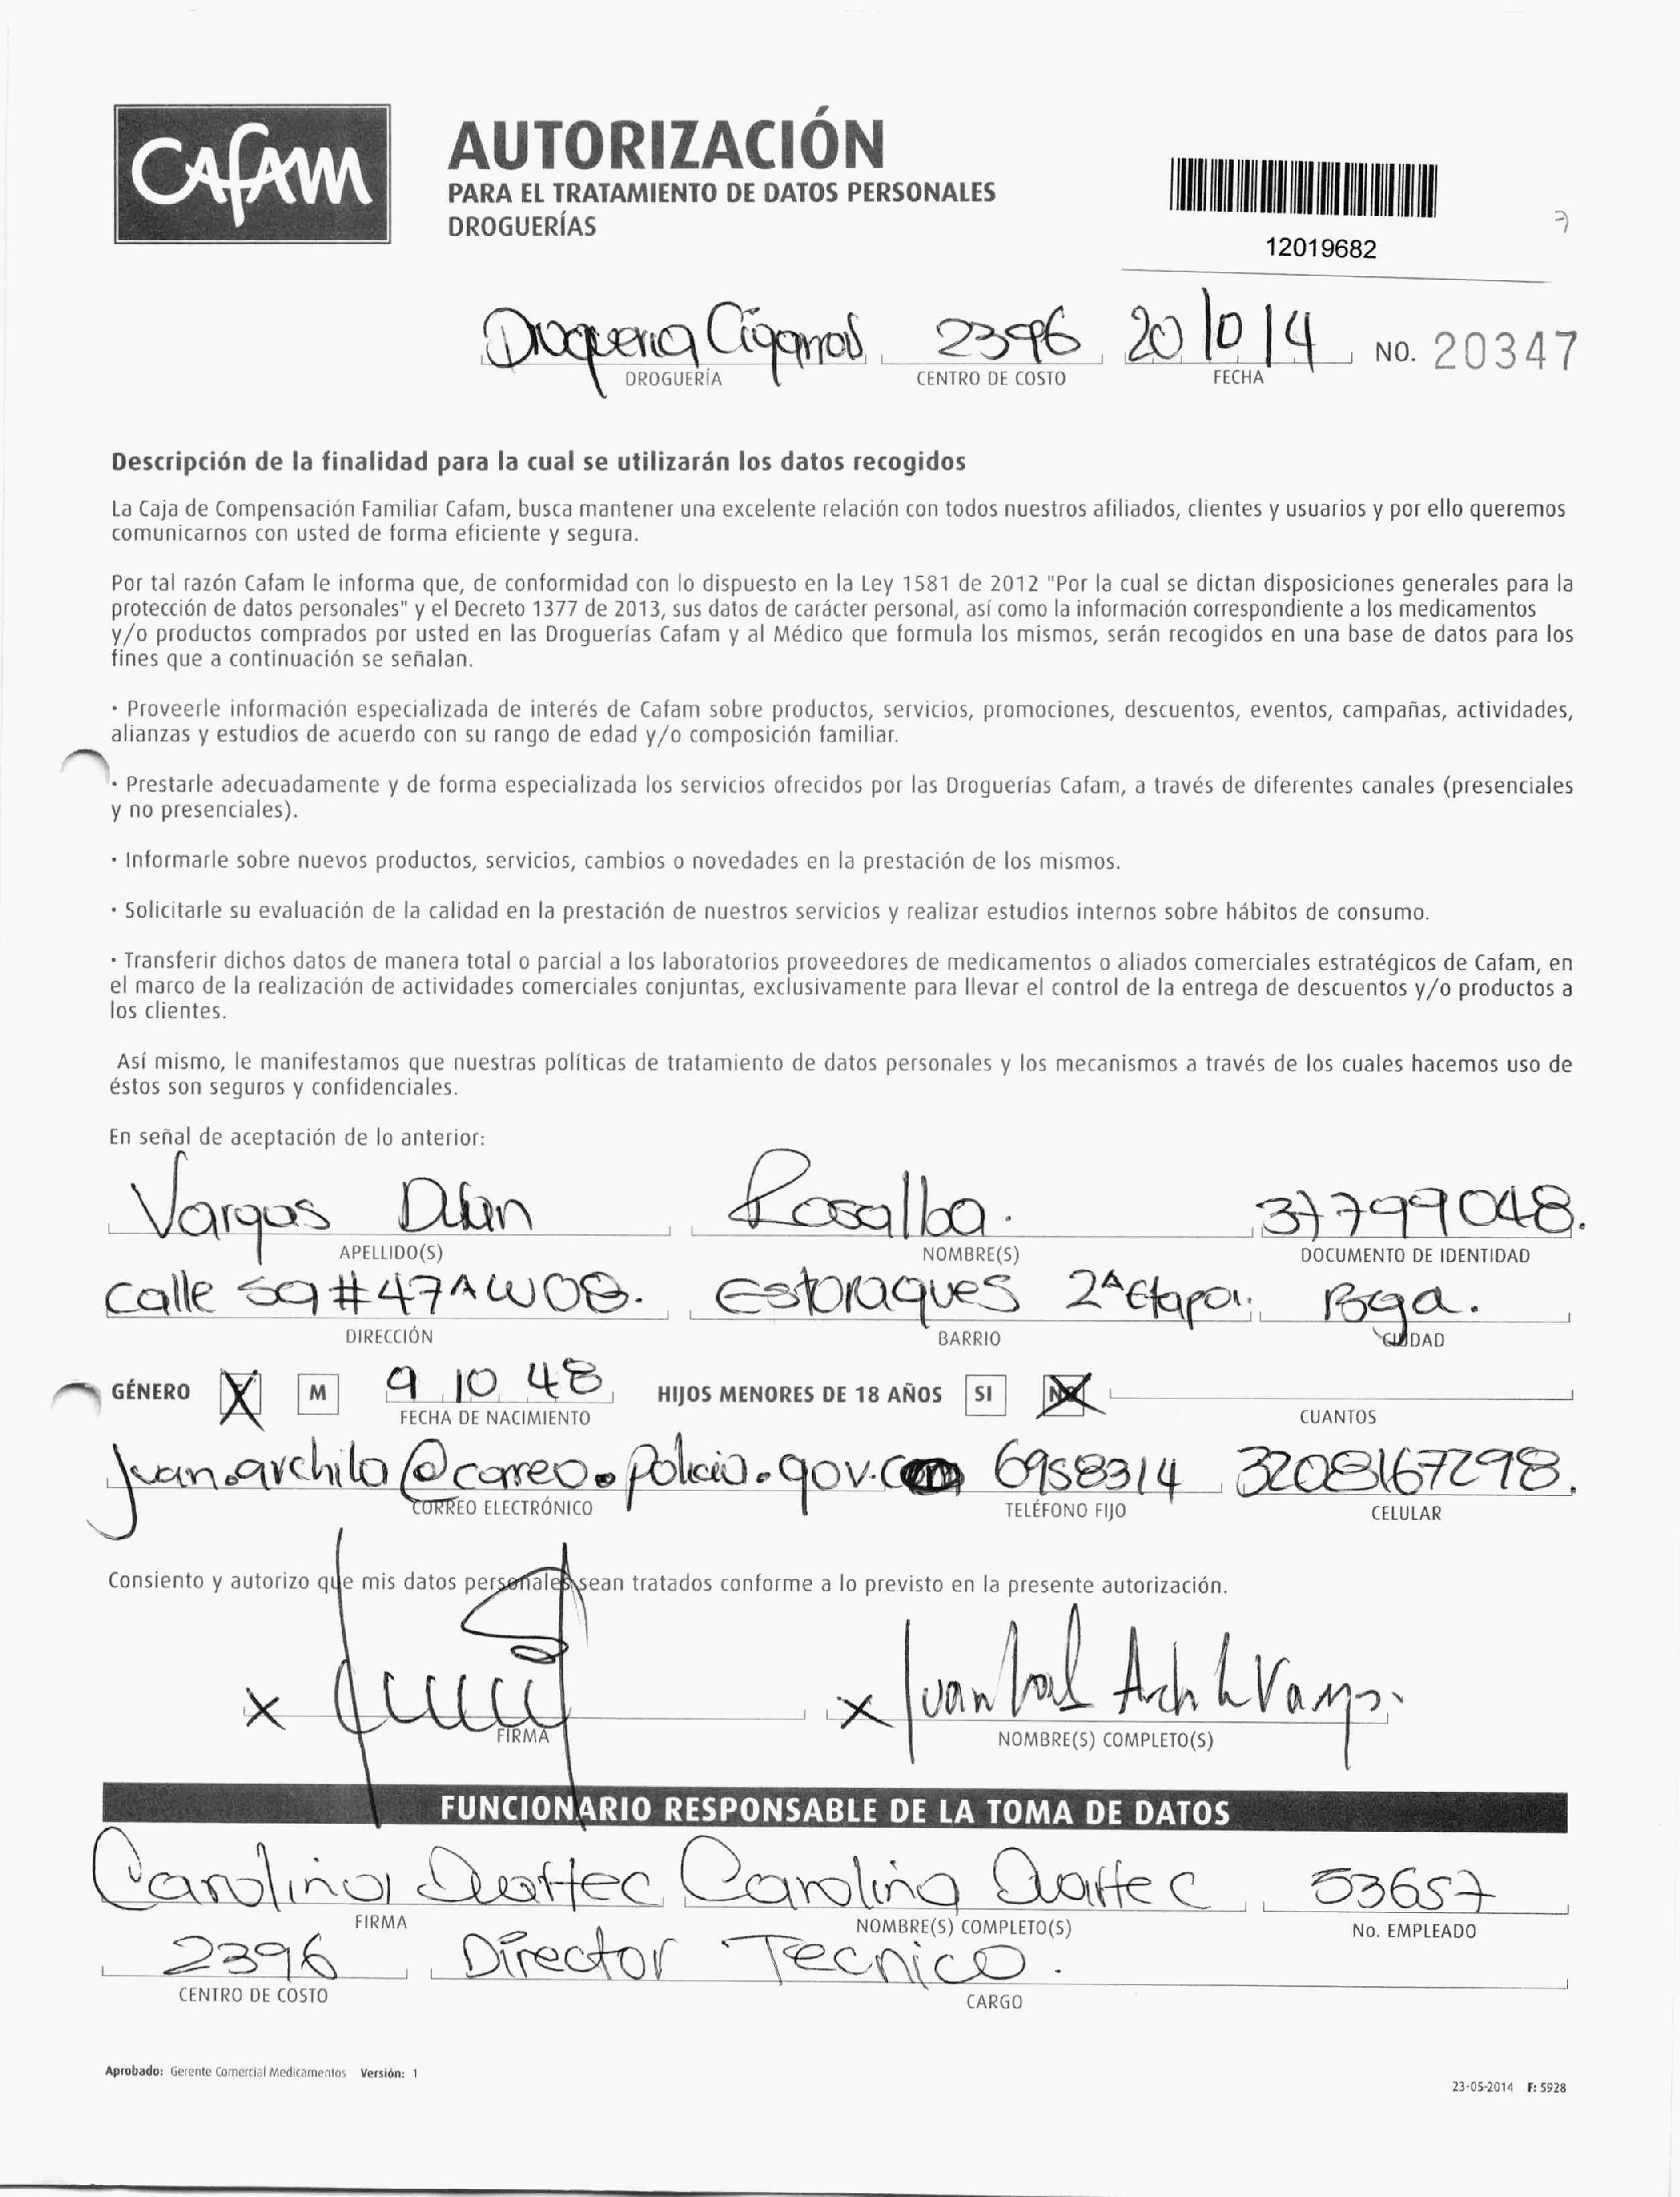 Cafam
AUTORIZACIÓN
PARA EL TRATAMIENTO DE DATOS PERSONALES
DROGUERÍAS
12019682
Drogueria Cigarras 2396 20 10 14 NO. 20347
DROGUERÍA CENTRO DE COSTO FECHA
Descripción de la finalidad para la cual se utilizarán los datos recogidos
La Caja de Compensación Familiar Cafam, busca mantener una excelente relación con todos nuestros afiliados, clientes y usuarios y por ello queremos
comunicarnos con usted de forma eficiente y segura.
Por tal razón Cafam le informa que, de conformidad con lo dispuesto en la Ley 1581 de 2012 "Por la cual se dictan disposiciones generales para la
protección de datos personales" y el Decreto 1377 de 2013, sus datos de carácter personal, así como la información correspondiente a los medicamentos
y/o productos comprados por usted en las Droguerías Cafam y al Médico que formula los mismos, serán recogidos en una base de datos para los
fines que a continuación se señalan.
· Proveerle información especializada de interés de Cafam sobre productos, servicios, promociones, descuentos, eventos, campañas, actividades,
alianzas y estudios de acuerdo con su rango de edad y/o composición familiar.
· Prestarle adecuadamente y de forma especializada los servicios ofrecidos por las Droguerías Cafam, a través de diferentes canales (presenciales
y no presenciales).
· Informarle sobre nuevos productos, servicios, cambios o novedades en la prestación de los mismos.
· Solicitarle su evaluación de la calidad en la prestación de nuestros servicios y realizar estudios internos sobre hábitos de consumo.
· Transferir dichos datos de manera total o parcial a los laboratorios proveedores de medicamentos o aliados comerciales estratégicos de Cafam, en
el marco de la realización de actividades comerciales conjuntas, exclusivamente para llevar el control de la entrega de descuentos y/o productos a
los clientes.
Así mismo, le manifestamos que nuestras políticas de tratamiento de datos personales y los mecanismos a través de los cuales hacemos uso de
éstos son seguros y confidenciales.
En señal de aceptación de lo anterior:
Vargas Rosalba. 37799048.
APELLIDO(S) NOMBRE(S) DOCUMENTO DE IDENTIDAD
calle 59 #47A W08. Estoraques 2ª Etapa. Bga.
DIRECCIÓN BARRIO CIUDAD
GÉNERO M 9 10 48 HIJOS MENORES DE 18 AÑOS SI NO
FECHA DE NACIMIENTO CUANTOS
juan.archila@correo.policia.gov.com 6958314 3208167298.
CORREO ELECTRÓNICO TELÉFONO FIJO CELULAR
Consiento y autorizo que mis datos personales sean tratados conforme a lo previsto en la presente autorización.
x x Juan
FIRMA NOMBRE(S) COMPLETO(S)
FUNCIONARIO RESPONSABLE DE LA TOMA DE DATOS
Carolina Carolina 53657
FIRMA NOMBRE(S) COMPLETO(S) No. EMPLEADO
2396 Director Tecnico.
CENTRO DE COSTO CARGO
Aprobado: Gerente Comercial Medicamentos Versión: 1
23-05-2014 F: 5928